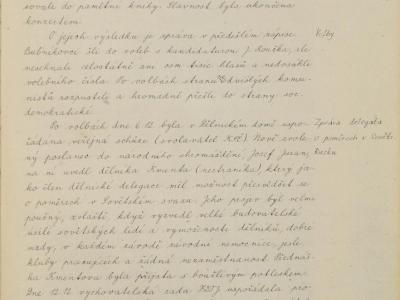 sovale do památní knihy. Slavnost byla ukončena
koncertem.
O jejich výsledku je správa v předešlém zápise. Volby
Bubníkovci šli do voleb s kandidaturou J. Koníka, ale
nesehnali celostátně ani osm tisíc hlasů a nedosáhli
volebního čísla. Po volbách stranu odvislých komu-
nistů rozpustili a hromadně přešli do strany soc.
demokratické.
Po volbách dne 6.12. byla v Dělnickém domě uspo- Zpráva delegáta
řádána veřejná schůze (svolavatel KSČ). Nově zvole- o poměrech v Sovětském
ný poslanec do národního shromáždění, Josef Juran, Rusku
na ní uvedl dělníka Kmenta (mechanika), který ja-
ko člen dělnické delegace měl možnost přesvědčit se
o poměrech v Sovětském svazu. Jeho projev byl velmi
poučný, zvláště, když vyzvedl velké budovatelské
úsilí sovětských lidí a vymoženosti dělníků, dobré
mzdy, v každém závodě závodní nemocnice, jesle,
kluby pracujících a žádná nezaměstnanost. Přednáš-
ka Kmentova byla přijata s bouřlivým potleskem.
Dne 12.12. vychovatelská rada uspořádala pro